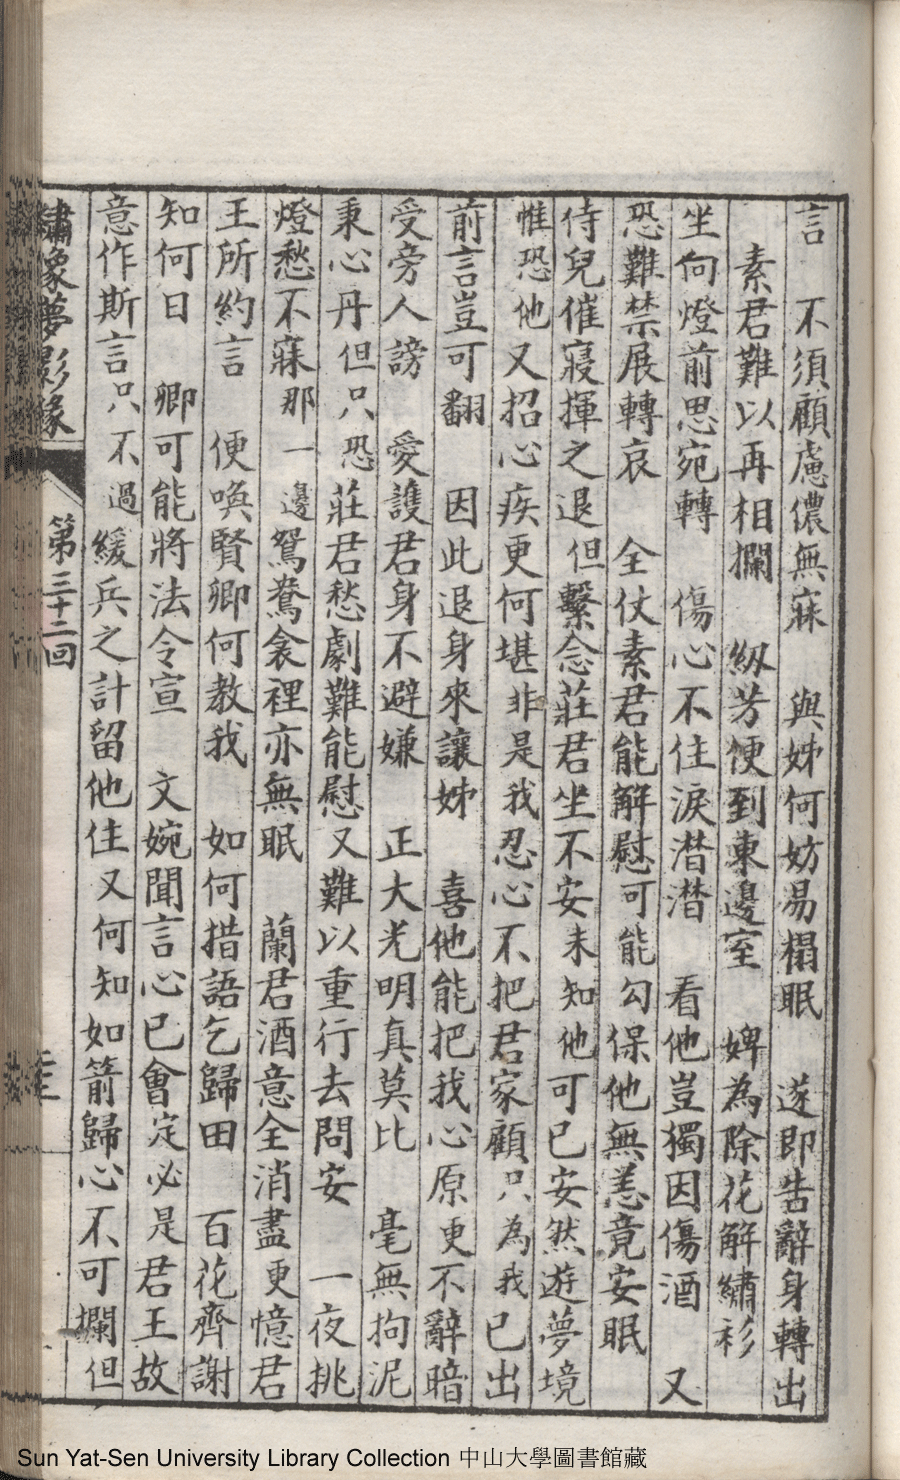 言　不須顧慮儂無寐　與姊何妨易榻眠　遂即告辭身轉出
素君難以再相攔　紉芳便到東邊室　婢為除花解繡衫
坐向燈前思宛轉　傷心不住淚潸潸　看他豈獨因傷酒　又
恐難禁展轉哀　全仗素君能解慰可能勾保他無恙竟安眠
侍兒催寢揮之退但繫念莊君坐不安未知他可已安然遊夢境
惟恐他又招心疾更何堪非是我忍心不把君家顧只為我已出
前言豈可翻　因此退身來讓姊　喜他能把我心原更不辭暗
受旁人謗　愛護君身不避嫌　正大光明真莫比　毫無拘泥
秉心丹但只恐莊君愁劇難能慰又難以重行去問安　一夜挑
燈愁不寐那一邊鴛鴦衾裡亦無眠　蘭君酒意全消盡更憶君
王所約言　便喚賢卿何教我　如何措語乞歸田　百花齊謝
知何日　卿可能將法令宣　文婉聞言心已會定必是君王故
意作斯言只不過緩兵之計留他住又何知如箭歸心不可攔但
繡像夢影緣　第三十二回
Sun Yat-Sen University Library Collection 中山大學圖書館藏